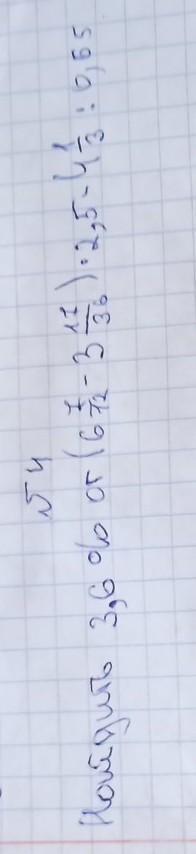 №4
Найдить 3,6% от (6 7/12 - 3 17/36) · 2,5 - 4 1/3 : 0,65